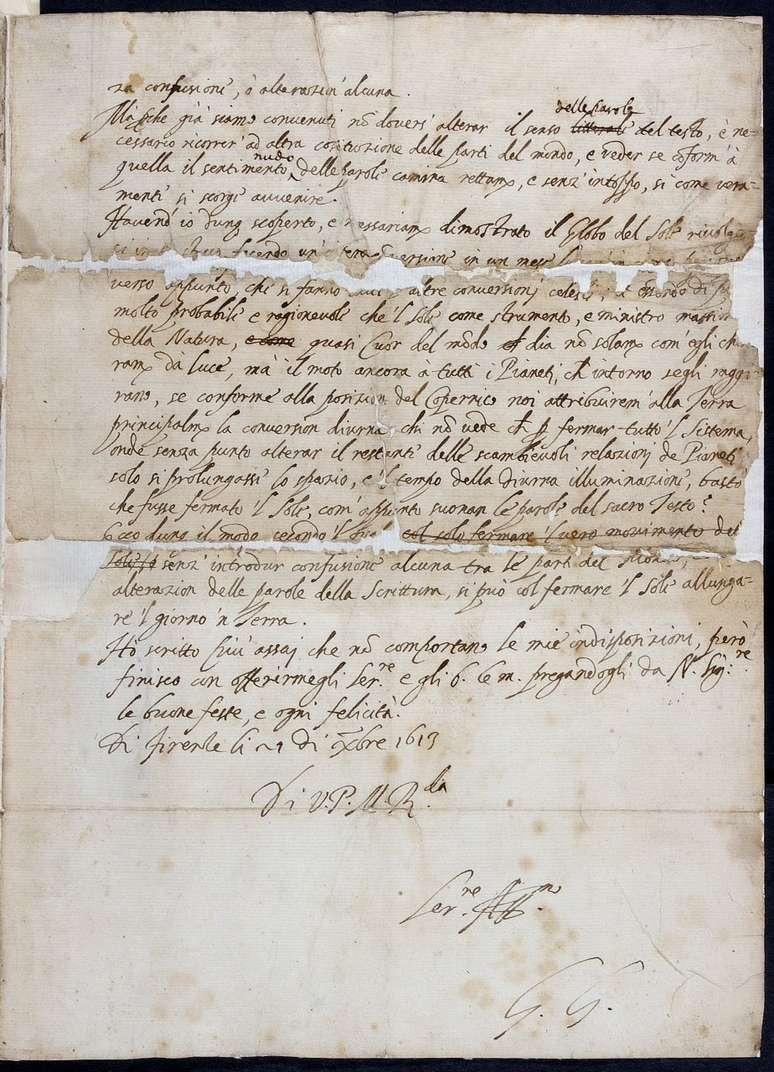 za confusione, ò alterazion' alcuna.
delle parole
Mà che già siamo convenuti nõ doversi alterar il senso litterale del testo, è ne=
cessario ricorrer' ad altra costituzione delle parti del mondo, e veder se cõforme à
nudo
quella il sentimento delle parole camina rettamẽ, e senz'intoppo, si come vera=
mente si scorge avvenire.
Havend' io dunq scoperto, e necessariamẽ dimostrato il Globo del Sole
in un mese
verso appunto, che si fanno altre conversioni celesti;
molto probabile e ragionevole che 'l Sole come strumento, e ministro
della Natura, e come quasi Cuor del mõdo dia nõ solamẽ com egli
ramẽ dà luce, mà il moto ancora à tutti i Pianeti, ch intorno segli raggi=
rano, se conforme alla position del Copernico noi attribuirem' alla Terra
principalmẽ la conversion diurna chi nõ vede ch p fermar tutto 'l Sistema,
onde senza punto alterar il restante delle scambievoli relazioni de Pianeti
solo si prolungasse lo spazio, e 'l tempo della diurna illuminazione, bastò
che fusse fermato 'l Sole, com' appunto suonan le parole del sacro Testo?
Ecco dunq il modo secondo 'l col solo fermare il vero movimento del
Sole senz' introdur confusione alcuna tra le parti del
alterazion delle parole della Scrittura, si può col fermare 'l Sole allunga=
re 'l giorno 'n Terra.
Hò scritto più assai che nõ comportano le mie indisposizioni, però
finisco con offerirmegli Ser.re e gli b. le m. pregandogli da N. Sig.re
le buone feste, e ogni felicità.
Di Firenze li 21 di Xbre 1613
Di V.P.M.R.da
Ser.re Aff.mo
G. G.